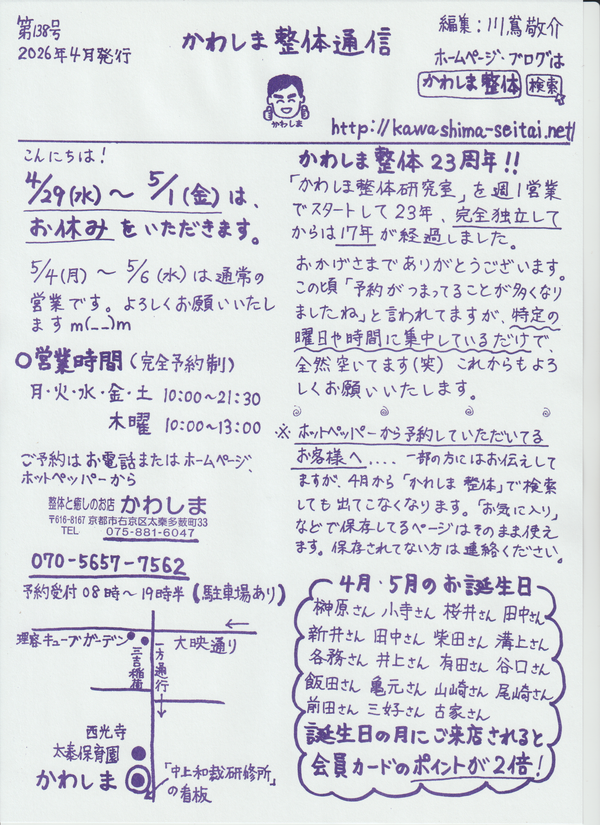 第138号
2026年4月発行
かわしま整体通信
編集：川嶌敬介
ホームページ・ブログは
かわしま整体 検索
かわしま
http://kawashima-seitai.net/
こんにちは！
4/29(水)～5/1(金)は、
お休みをいただきます。
5/4(月)～5/6(水)は通常の
営業です。よろしくお願いいたし
ますm(__)m
○営業時間(完全予約制)
月・火・水・金・土 10:00～21:30
木曜 10:00～13:00
ご予約はお電話またはホームページ、
ホットペッパーから
整体と癒しのお店 かわしま
〒616-8167 京都市右京区太秦多藪町33
TEL 075-881-6047
070-5657-7562
予約受付08時～19時半(駐車場あり)
理容キューブガーデン
三吉稲荷
一方通行
大映通り
西光寺
太秦保育園
かわしま
「中上和裁研修所」
の看板
かわしま整体23周年！！
「かわしま整体研究室」を週1営業
でスタートして23年、完全独立して
からは17年が経過しました。
おかげさまでありがとうございます。
この頃「予約がつまってることが多くなり
ましたね」と言われてますが、特定の
曜日や時間に集中しているだけで、
全然空いてます(笑) これからもよろ
しくお願いいたします。
※ホットペッパーから予約していただいてる
お客様へ....一部の方にはお伝えして
ますが、4月から「かわしま 整体」で検索
しても出てこなくなります。「お気に入り」
などで保存してるページはそのまま使え
ます。保存されてない方は連絡ください。
4月・5月のお誕生日
榊原さん 小寺さん 桜井さん 田中さん
新井さん 田中さん 柴田さん 溝上さん
各務さん 井上さん 有田さん 谷口さん
飯田さん 亀元さん 山崎さん 尾崎さん
前田さん 三好さん 古家さん
誕生日の月にご来店されると
会員カードのポイントが2倍！